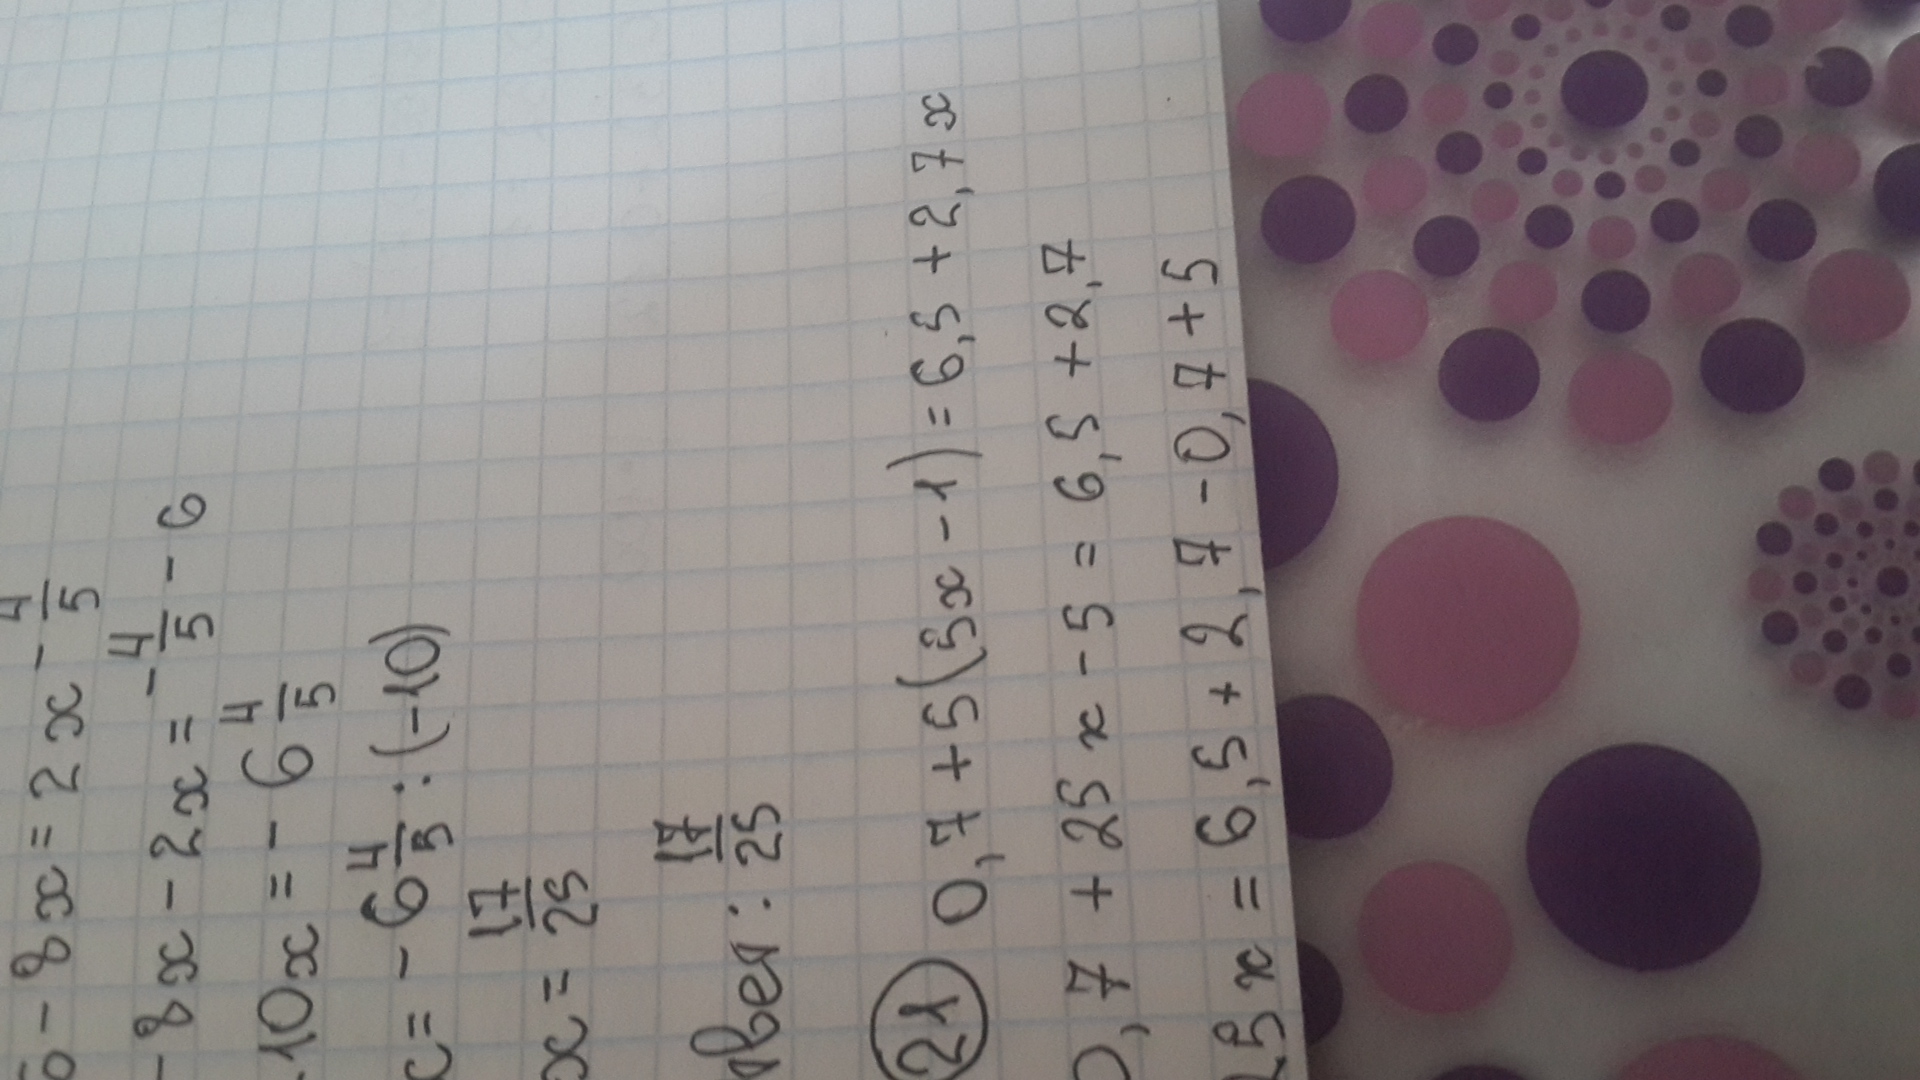 - 8x = 2x - 4/5
- 8x - 2x = - 4/5 - 6
10x = - 6 4/5
x = - 6 4/5 : (-10)
x = 17/25
твет : 17/25
21 0,7 + 5(5x - 1) = 6,5 + 2,7x
0,7 + 25x - 5 = 6,5 + 2,7
25x = 6,5 + 2,7 - 0,7 + 5